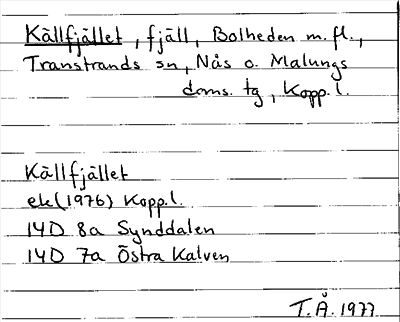 Källfjället, fjäll, Bolheden m.fl.,
Transtrands sn, Nås o. Malungs
doms. tg, Kopp. l.
Källfjället
ek (1976) Kopp. l.
14D 8a Synddalen
14D 7a Östra Kalven
T.Å. 1977